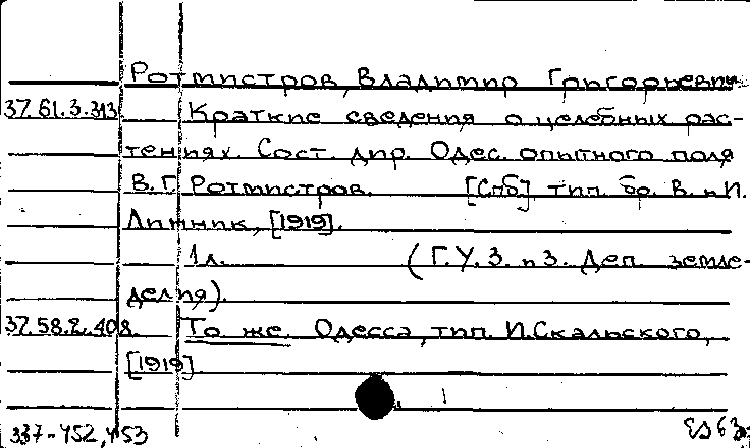 Ротмистров, Владимир Григорьевич
37.61.3.313 Краткие сведения о целебных рас-
тениях. Сост. дир. Одес. опытного поля
В.Г. Ротмистров. [Спб] тип. бр. В. и И.
Линник, [1919].
1 л. (Г.У.З. и З. Деп. земле-
делия).
37.58.2.408. То же. Одесса, тип. И.Скальского,
[1919]
337-452,453